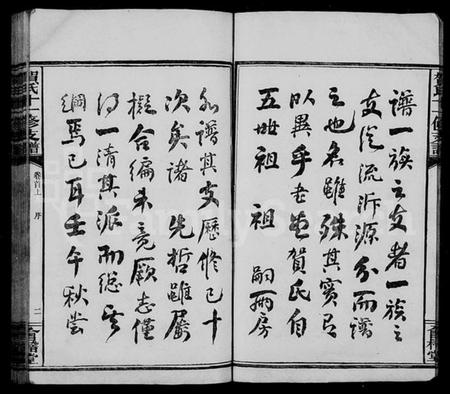 譜一族之支者一族之
支從流泝源分而譜
之也名雖殊其實有
以異乎哉賀氏自
五世祖 祖嗣兩房
分譜其支歷修已十
次矣諸 先哲雖屬
擬合編未竟厥志僅
得一清其派而總其
綱焉已耳壬午秋嘗
賀氏十一修支譜
卷首上 序
二
賀氏十一修支譜
會稽堂